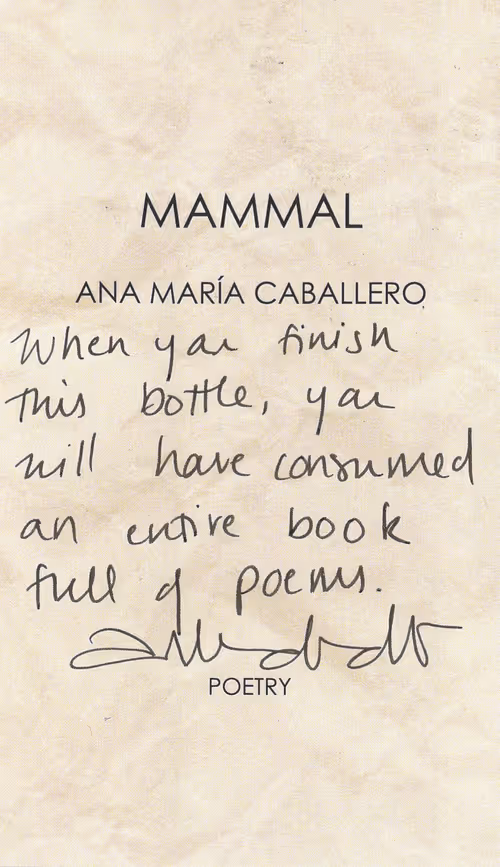 MAMMAL
ANA MARÍA CABALLERO
When you finish
this bottle, you
will have consumed
an entire book
full of poems.
POETRY